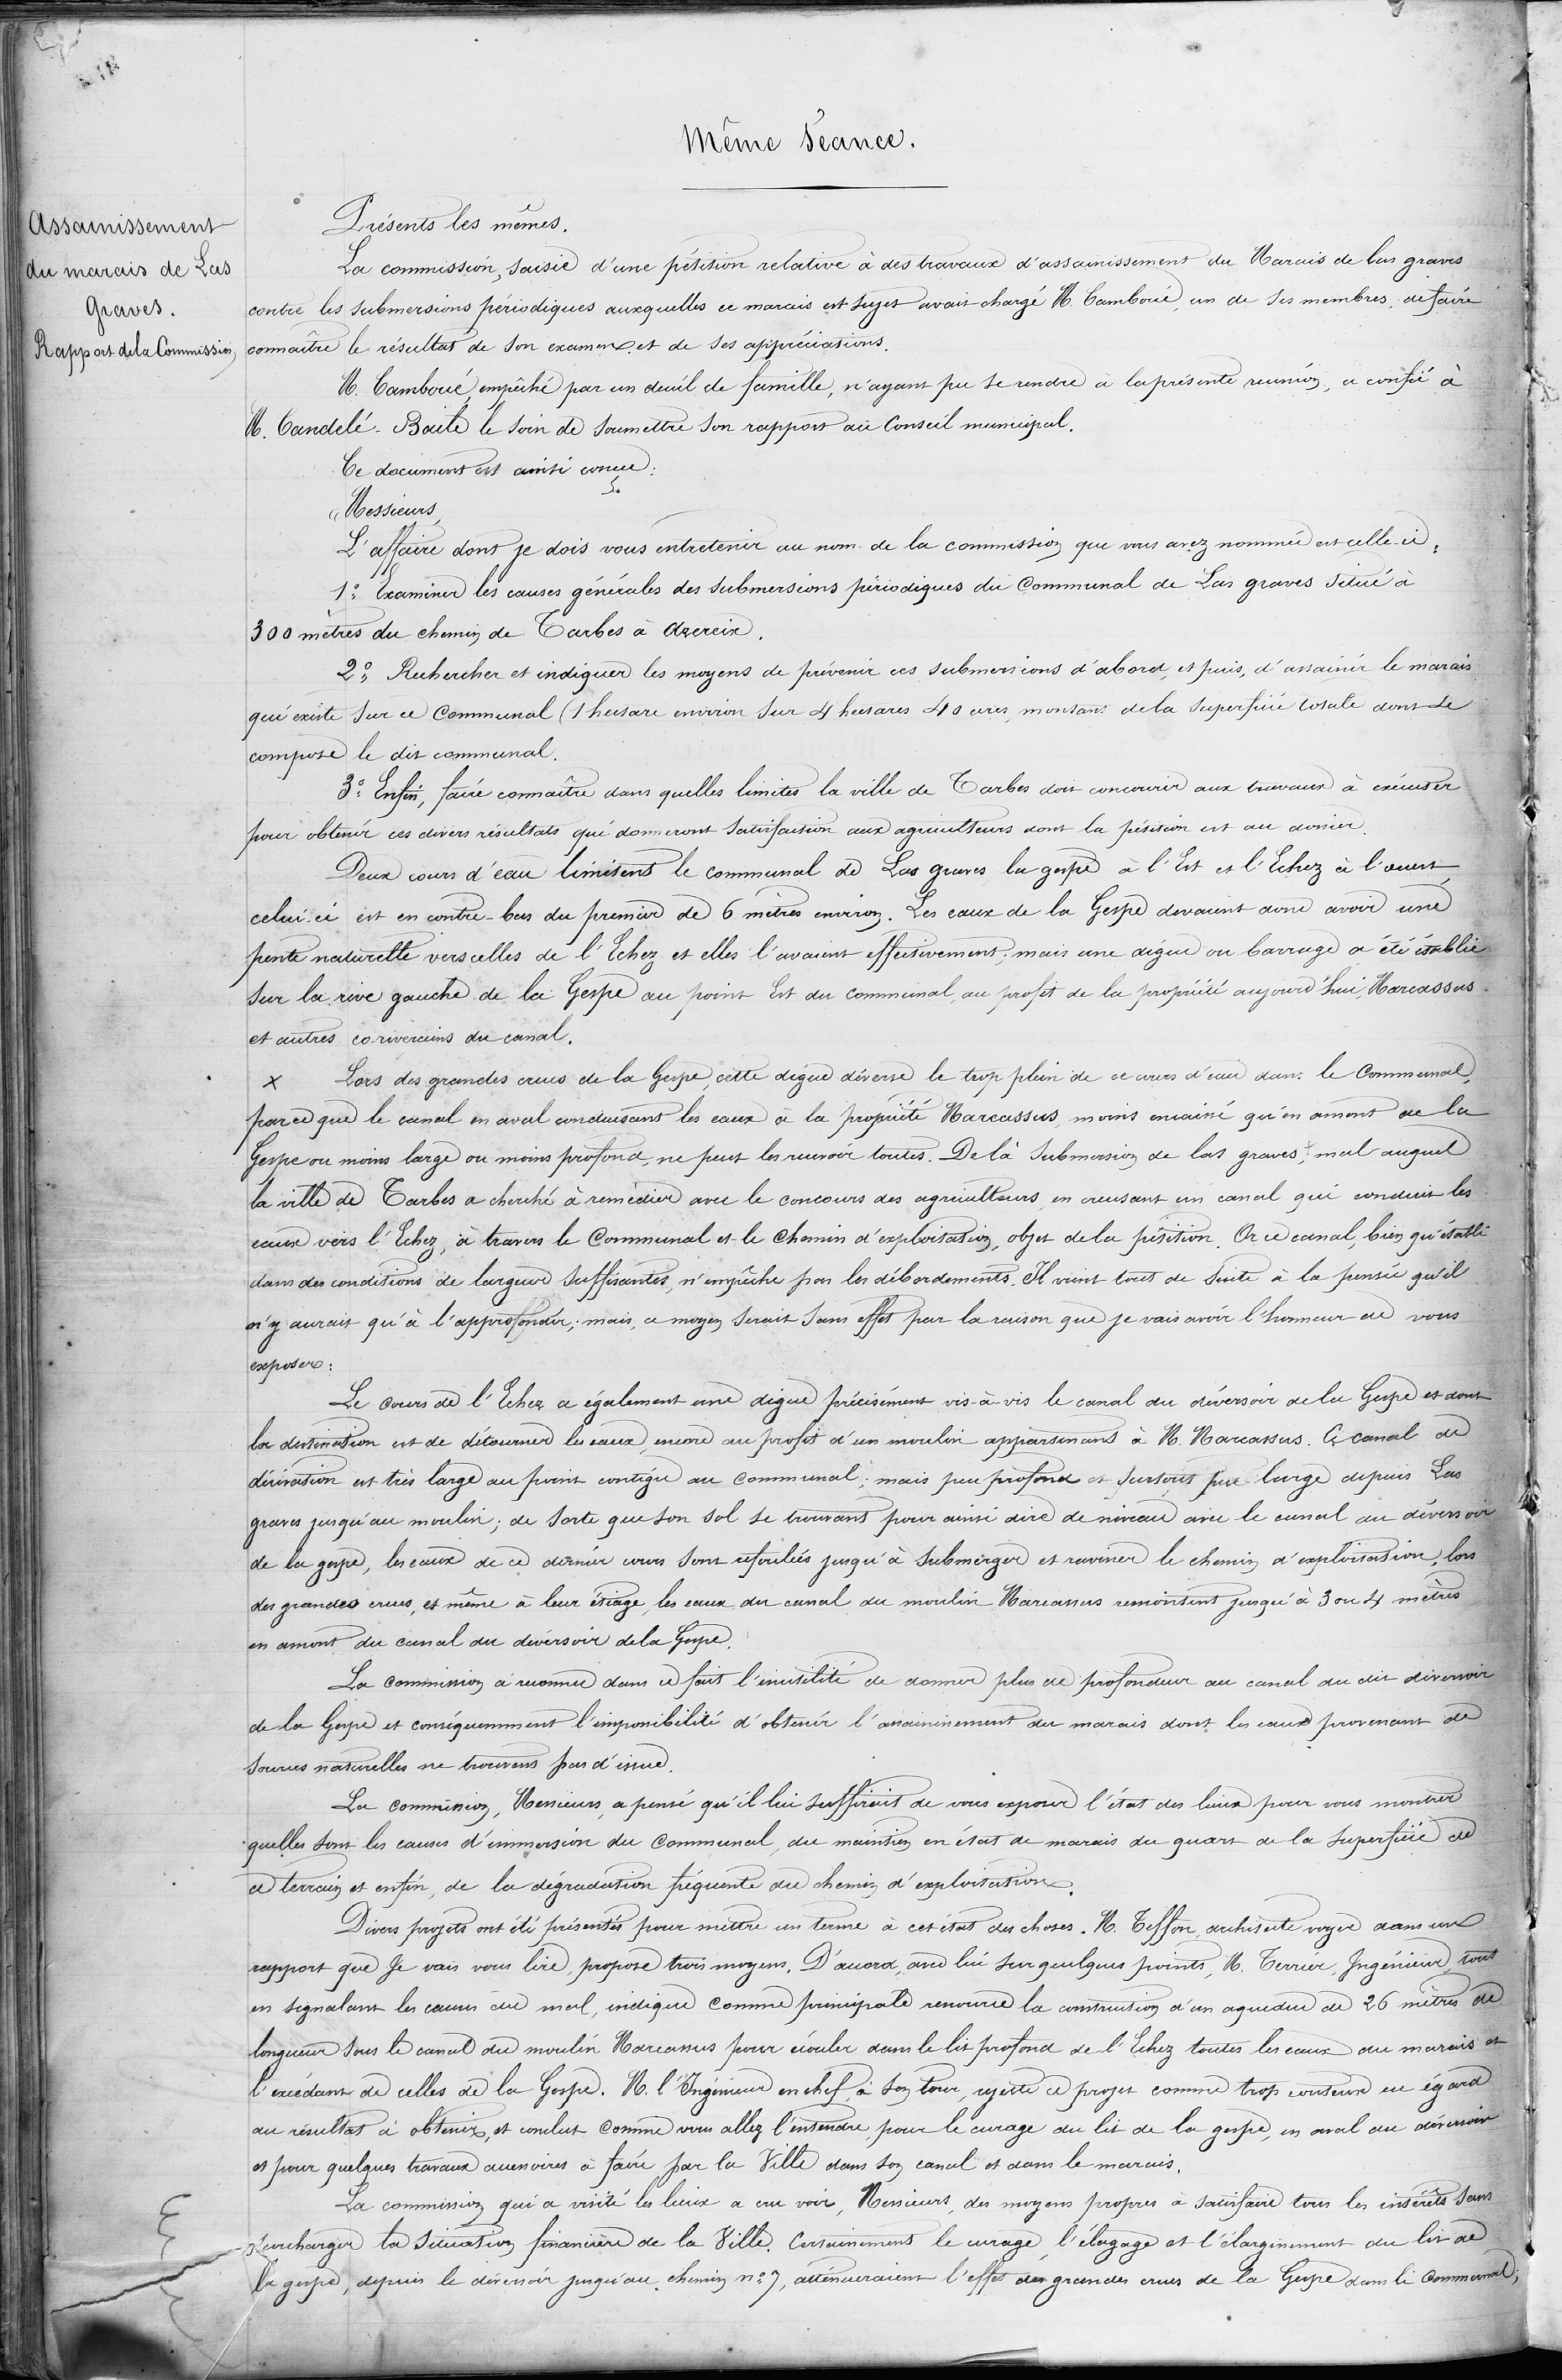 Même Séance.
Assainissement
du marais de Las
Graves.
Rapport de la Commission
Présents les mêmes.
La commission, saisie d'une pétition relative à des travaux d'assainissement du Marais de las graves
contre les submersions périodiques auxquelles ce marais est sujet avait chargé M. Camboué, un de ses membres, de faire
connaître le résultat de son examen et de ses appréciations.
M. Camboué, empêché par un deuil de famille, n'ayant pu se rendre à la présente réunion, a confié à
M. Candelé-Baile le soin de soumettre son rapport au Conseil municipal.
Ce document est ainsi conçu :
« Messieurs,
L'affaire dont je dois vous entretenir au nom de la commission que vous avez nommée est celle-ci :
1º Examiner les causes générales des submersions périodiques du Communal de Las graves situé à
300 mètres du chemin de Tarbes à Azereix.
2º Rechercher et indiquer les moyens de prévenir ces submersions d'abord, et puis, d'assainir le marais
qui existe sur ce Communal (1 hectare environ sur 4 hectares 40 ares, montant de la superficie totale dont se
compose le dit communal.
3º Enfin, faire connaître dans quelles limites la ville de Tarbes doit concourir aux travaux à exécuter
pour obtenir ces divers résultats qui donneront satisfaction aux agriculteurs dont la pétition est au dossier.
Deux cours d'eau limitent le communal de Las graves, la gespe à l'Est et l'Echez à l'ouest,
celui-ci est en contre-bas du premier de 6 mètres environ. Les eaux de la Gespe devaient donc avoir une
pente naturelle vers celles de l'Echez et elles l'avaient effectivement ; mais une digue ou barrage a été établie
sur la rive gauche de la Gespe au point Est du communal, au profit de la propriété aujourd'hui, Marcassus
et autres co-riverains du canal.
x Lors des grandes crues de la Gespe, cette digue déverse le trop plein de ce cours d'eau dans le Communal,
parce que le canal en aval conduisant les eaux à la propriété Marcassus, moins encaissé qu'en amont de la
Gespe ou moins large ou moins profond, ne peut les recevoir toutes. De là submersion de las graves, mal auquel
la ville de Tarbes a cherché à remédier avec le concours des agriculteurs en creusant un canal qui conduit les
eaux vers l'Echez, à travers le Communal et le Chemin d'exploitation, objet de la pétition. Or ce canal, bien qu'établi
dans des conditions de largeur suffisantes, n'empêche pas les débordements. Il vient tout de suite à la pensée qu'il
n'y aurait qu'à l'approfondir ; mais, ce moyen serait sans effet par la raison que je vais avoir l'honneur de vous
exposer :
Le cours de l'Echez a également une digue précisément vis-à-vis le canal du déversoir de la Gespe et dont
la destination est de détourner les eaux, encore au profit d'un moulin appartenant à M. Marcassus. Ce canal de
dérivation est très large au point contigu au communal ; mais peu profond et surtout peu large depuis Las
graves jusqu'au moulin ; de sorte que son sol se trouvant pour ainsi dire de niveau avec le canal du déversoir
de la gespe, les eaux de ce dernier cours sont refoulées jusqu'à submerger et raviner le chemin d'exploitation, lors
des grandes crues, et même à leur étiage, les eaux du canal du moulin Marcassus remontent jusqu'à 3 ou 4 mètres
en amont du canal du déversoir de la Gespe.
La commission a reconnu dans ce fait l'inutilité de donner plus de profondeur au canal du dit déversoir
de la Gespe et conséquemment l'impossibilité d'obtenir l'assainissement du marais dont les eaux provenant de
sources naturelles ne trouvent pas d'issue.
La commission, Messieurs, a pensé qu'il lui suffirait de vous exposer l'état des lieux pour vous montrer
quelles sont les causes d'immersion du Communal, du maintien en état de marais du quart de la superficie de
ce terrain et enfin, de la dégradation fréquente du chemin d'exploitation.
Divers projets ont été présentés pour mettre un terme à cet état des choses. M. Teffon, architecte voyer dans un
rapport que je vais vous lire, propose trois moyens. D'accord, avec lui sur quelques points, M. Terrier, Ingénieur, tout
en signalant les causes du mal, indique comme principale ressource la construction d'un aqueduc de 26 mètres de
longueur sous le canal du moulin Marcassus pour écouler dans le lit profond de l'Echez toutes les eaux du marais et
l'excédant de celles de la Gespe. M. l'Ingénieur en chef, à son tour, rejette ce projet comme trop couteux eu égard
au résultat à obtenir, et conclut comme vous allez l'entendre, pour le curage du lit de la gespe, en aval du déversoir
et pour quelques travaux accessoires à faire par la Ville dans son canal et dans le marais.
La commission qui a visité les lieux a cru voir, Messieurs, des moyens propres à satisfaire tous les intérêts sans
surcharger la situation financière de la Ville. Certainement le curage, l'élagage et l'élargissement du lit de
la gespe, depuis le déversoir jusqu'au chemin nº 7, atténueraient l'effet des grandes crues de la Gespe dans le Communal,